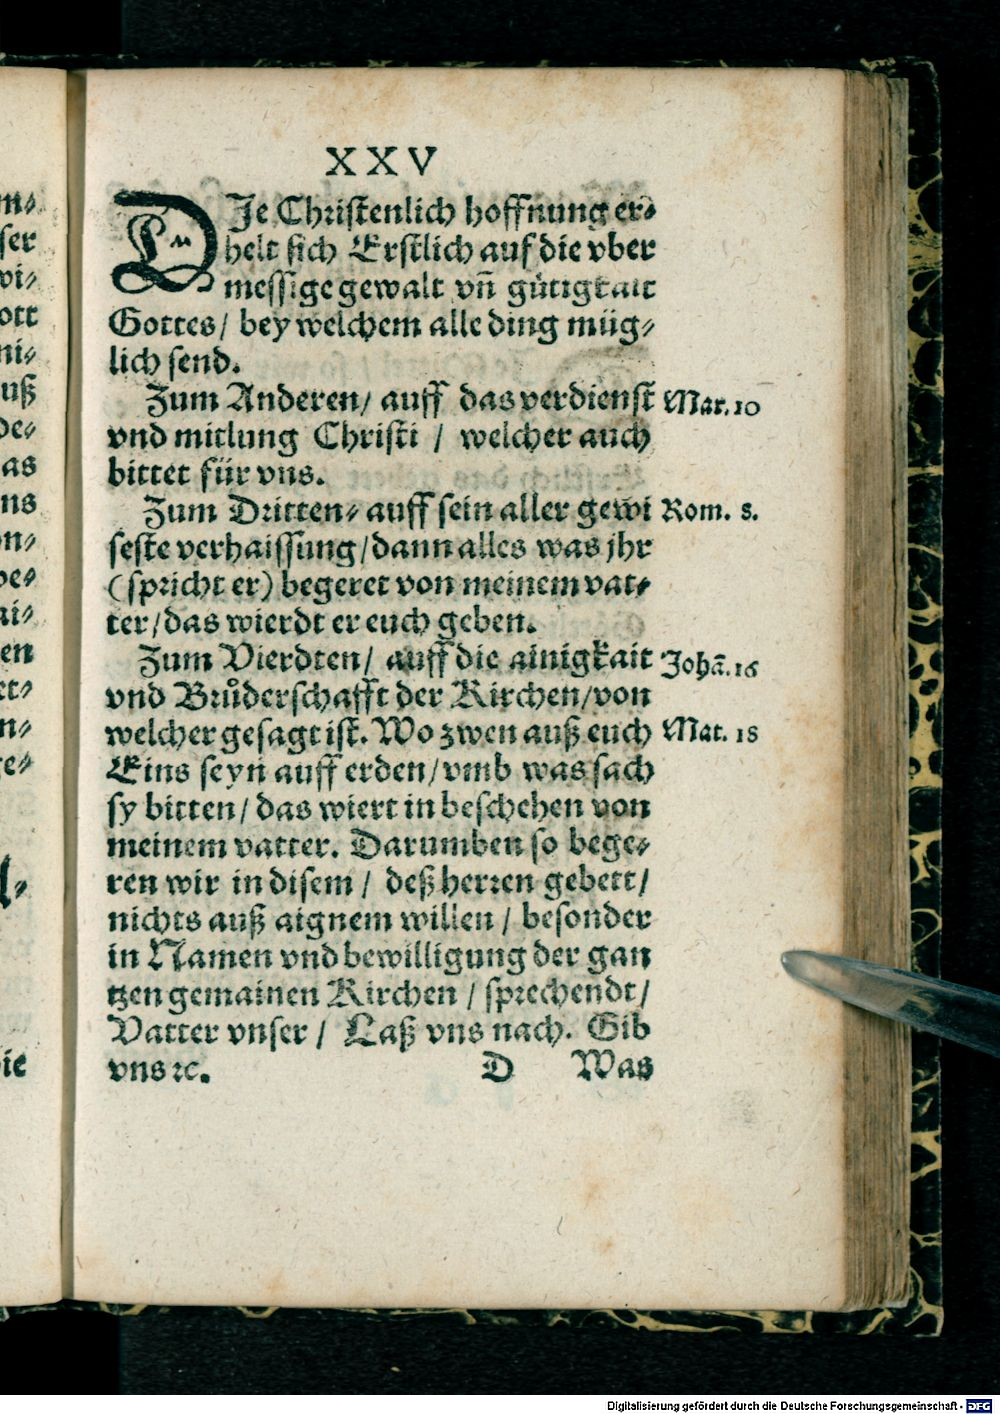 XXV
DIe Christenlich hoffnung er⸗
helt sich Erstlich auf die vber
messige gewalt vn̄ gütigkait
Gottes / bey welchem alle ding müg⸗
lich send.
Zum Anderen / auff das verdienst
Mat. 10
vnd mitlung Christi / welcher auch
bittet für vns.
Zum Dritten⸗ auff sein aller gewi
Rom. 8.
seste verhaissung / dann alles was jhr
(spricht er) begeret von meinem vat⸗
ter / das wierdt er euch geben.
Zum Vierdten / auff die ainigkait
Johā. 16
vnd Bruͦderschafft der Kirchen / von
welcher gesagt ist. Wo zwen auß euch
Mat. 18
Eins seyn auff erden / vmb was sach
sy bitten / das wiert in beschehen von
meinem vatter. Darumben so bege⸗
ren wir in disem / deß herren gebett /
nichts auß aignem willen / besonder
in Namen vnd bewilligung der gan
tzen gemainen Kirchen / sprechendt /
Vatter vnser / Laß vns nach. Gib
vns ꝛc.
D Was
m⸗
ser
wi⸗
ott
ni⸗
uß
de⸗
as
ns
on⸗
be⸗
ai⸗
en
et⸗
n⸗
ge⸗
l⸗
die
Digitalisierung gefördert durch die Deutsche Forschungsgemeinschaft - DFG